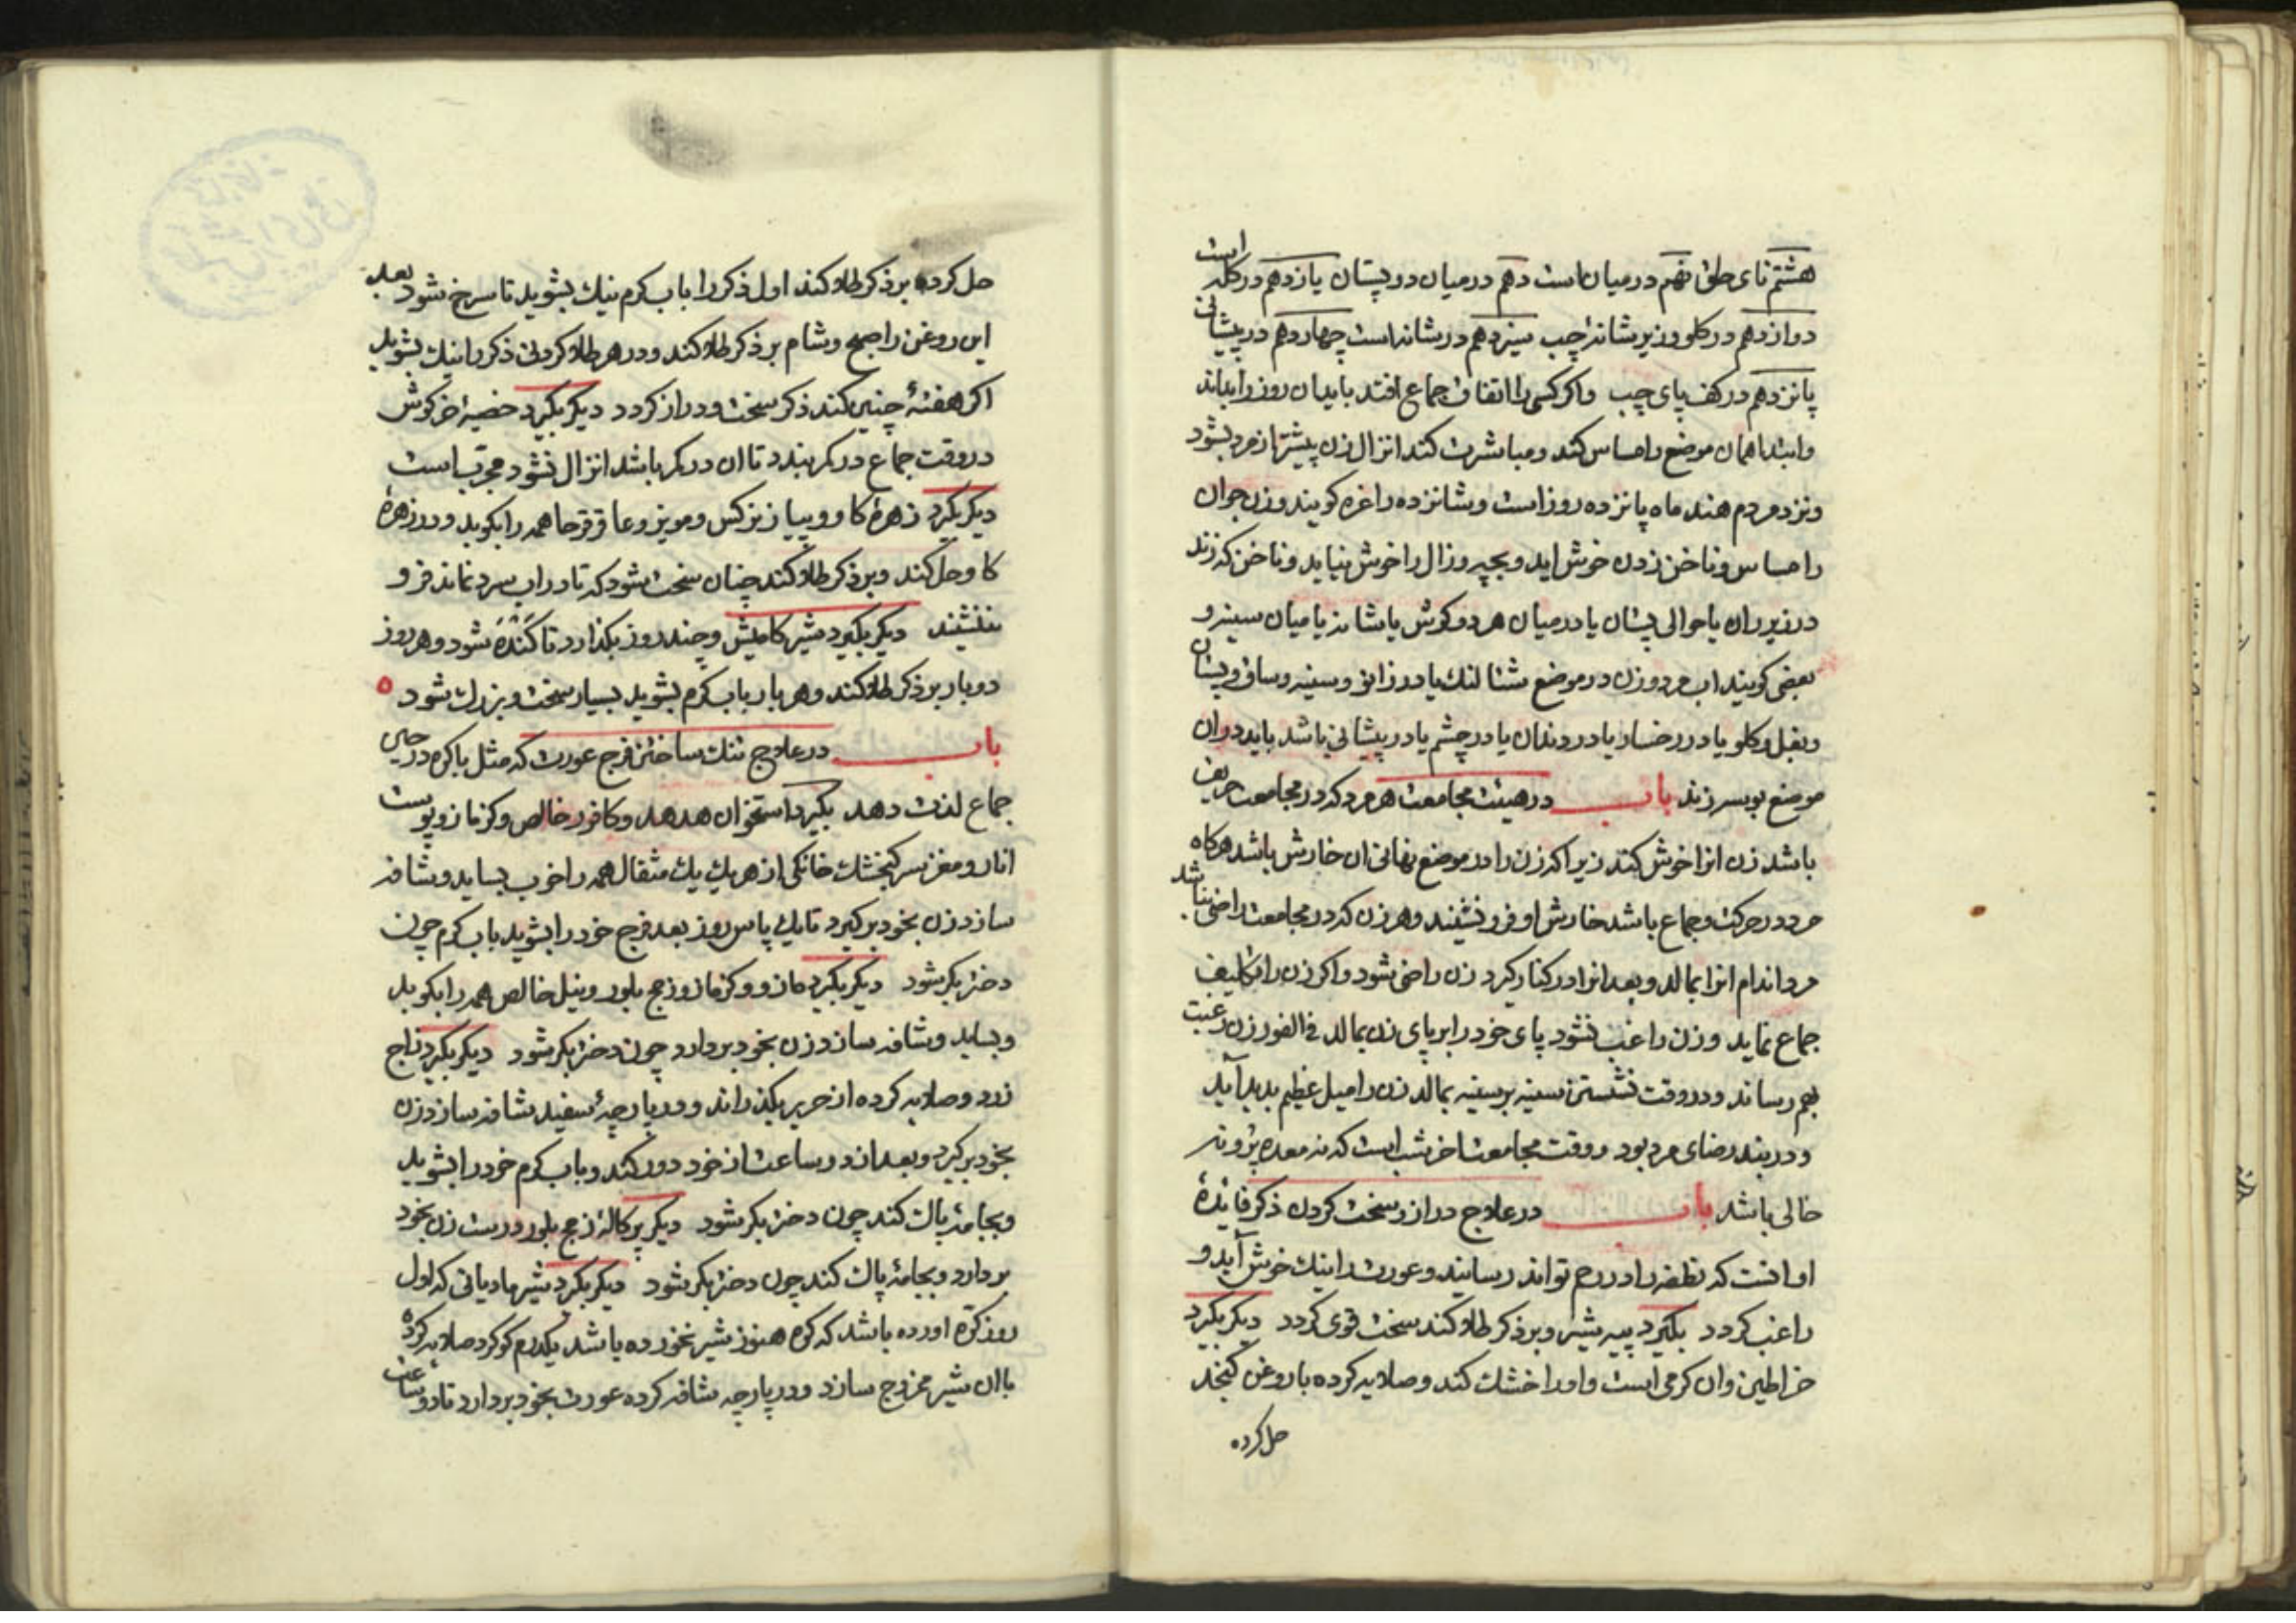 هشتم نای حلق نهم در میان است دهم در میان دو پستان یازدهم در کله است
دوازدهم در کلو و زیر شانه چپ سیزدهم در شانه است چهاردهم در پیشانی
پانزدهم در کف پای چپ واکر کسی را اتفاق جماع افتد باید ان روز را بداند
وابتدا همان موضع را مساس کند ومباشرت کند انزال زن پیشتر از مرد بشود
ونزد مردم هند ماه پانزده روز است وشانزده را غره کویند وزن جوان
را مساس وناخن زدن خوش اید وبچیر وزال را خوش نیاید وناخن که زند
در زیر ران یا حوالی پستان یا درمیان هر دو کوش یا شانه یا میان سینه و
بعضی کویند اب مرد وزن در موضع شتالنک یا در زانو وسینه وساق وپستان
وبغل وکلو یا در رخسار یا در دندان یا در چشم یا در پیشانی باشد باید در ان
موضع بوسه زند باب در هیئت مجامعت هر مرد که در مجامعت حریف
باشد زن انرا خوش کند زیرا که زن را در موضع نهانی ان خارش باشد هرکاه
مرد در حرکت وجماع باشد خارش او فرو نشیند وهر زن که در مجامعت راضی نباشد
مرد اندام انرا بمالد وبعد انرا در کنار کیرد زن راضی شود واکر زن را تکلیف
جماع نماید وزن راغب نشود پای خود را بر پای زن بمالد فی الفور زن رغبت
بهم رساند ودر وقت نشستن سینه بر سینه بمالد زن را میل عظیم پدید آید
ودر بند رضای مرد بود ووقت مجامعت اخر شب است که نه معده پر ونه
خالی باشد باب در علاج دراز وسخت کردن ذکر فایدهٔ
او انست که نطفه را در رحم تواند رسانید وعورت را نیک خوش آید و
راغب کردد بکیرد پیه شیر وبر ذکر طلا کند سخت قوی کردد دیکر بکیرد
خراطین وان کرمی است واو را خشک کند وصلایه کرده با روغن کنجد
حل کرده
حل کرده بر ذکر طلا کند اول ذکر را باب کرم نیک بشوید تا سرخ شود بعد
این روغن را صبح وشام بر ذکر طلا کند ودر هر طلا کردنی ذکر را نیک بشوید
اکر هفتهٔ چنین کند ذکر سخت ودراز کردد دیکر بکیرد خصیهٔ خرکوش
در وقت جماع در کمر بندد تا ان در کمر باشد انزال نشود مجرّب است
دیکر بکیرد زهرهٔ کاو وپیاز نرکس ومویز وعاقرقرحا همه را بکوبد ودر زهرهٔ
کاو حل کند وبر ذکر طلا کند چنان سخت شود که تا در اب سرد نماند فرو
ننشیند دیکر بکیرد شیر کامیش وچند روز بکذارد تا کَنْدَه شود وهر روز
دو بار بر ذکر طلا کند وهر بار باب کرم بشوید بسیار سخت وبزرک شود
باب در علاج تنک ساختن فرج عورت که مثل باکره در حین
جماع لذت دهد بکیرد استخوان هدهد وکافور خالص وکزمازو پوست
انار ومغز سر کنجشک خانکی از هر یک یک مثقال همه را خوب بساید وشافه
سازد زن بخود برکیرد تا یک پاس روز بعد فرج خود را بشوید باب کرم چون
دختر بکر شود دیکر بکیرد مازو وکزمازو زج بلور ونیل خالص همه را بکوبد
وبساید وشافه سازد زن بخود بردارد چون دختر بکر شود دیکر بکیرد زاج
زرد وصلایه کرده از حریر بکذراند ودر پارچهٔ سفید شافه سازد زن
بخود برکیرد وبعد از دو ساعت از خود دور کند وباب کرم خود را بشوید
وبجامهٔ پاک کند چون دختر بکر شود دیکر پرکالهٔ زج بلور درست زن بخود
بردارد وبجامهٔ پاک کند چون دختر بکر شود دیکر بکیرد شیر مادیانی که اول
روز کرّه اورده باشد که کره هنوز شیر نخورده باشد یکدرم کوکرد صلایه کرده
با ان شیر ممزوج سازد ودر پارچه شافه کرده عورت بخود بردارد تا دو ساعت